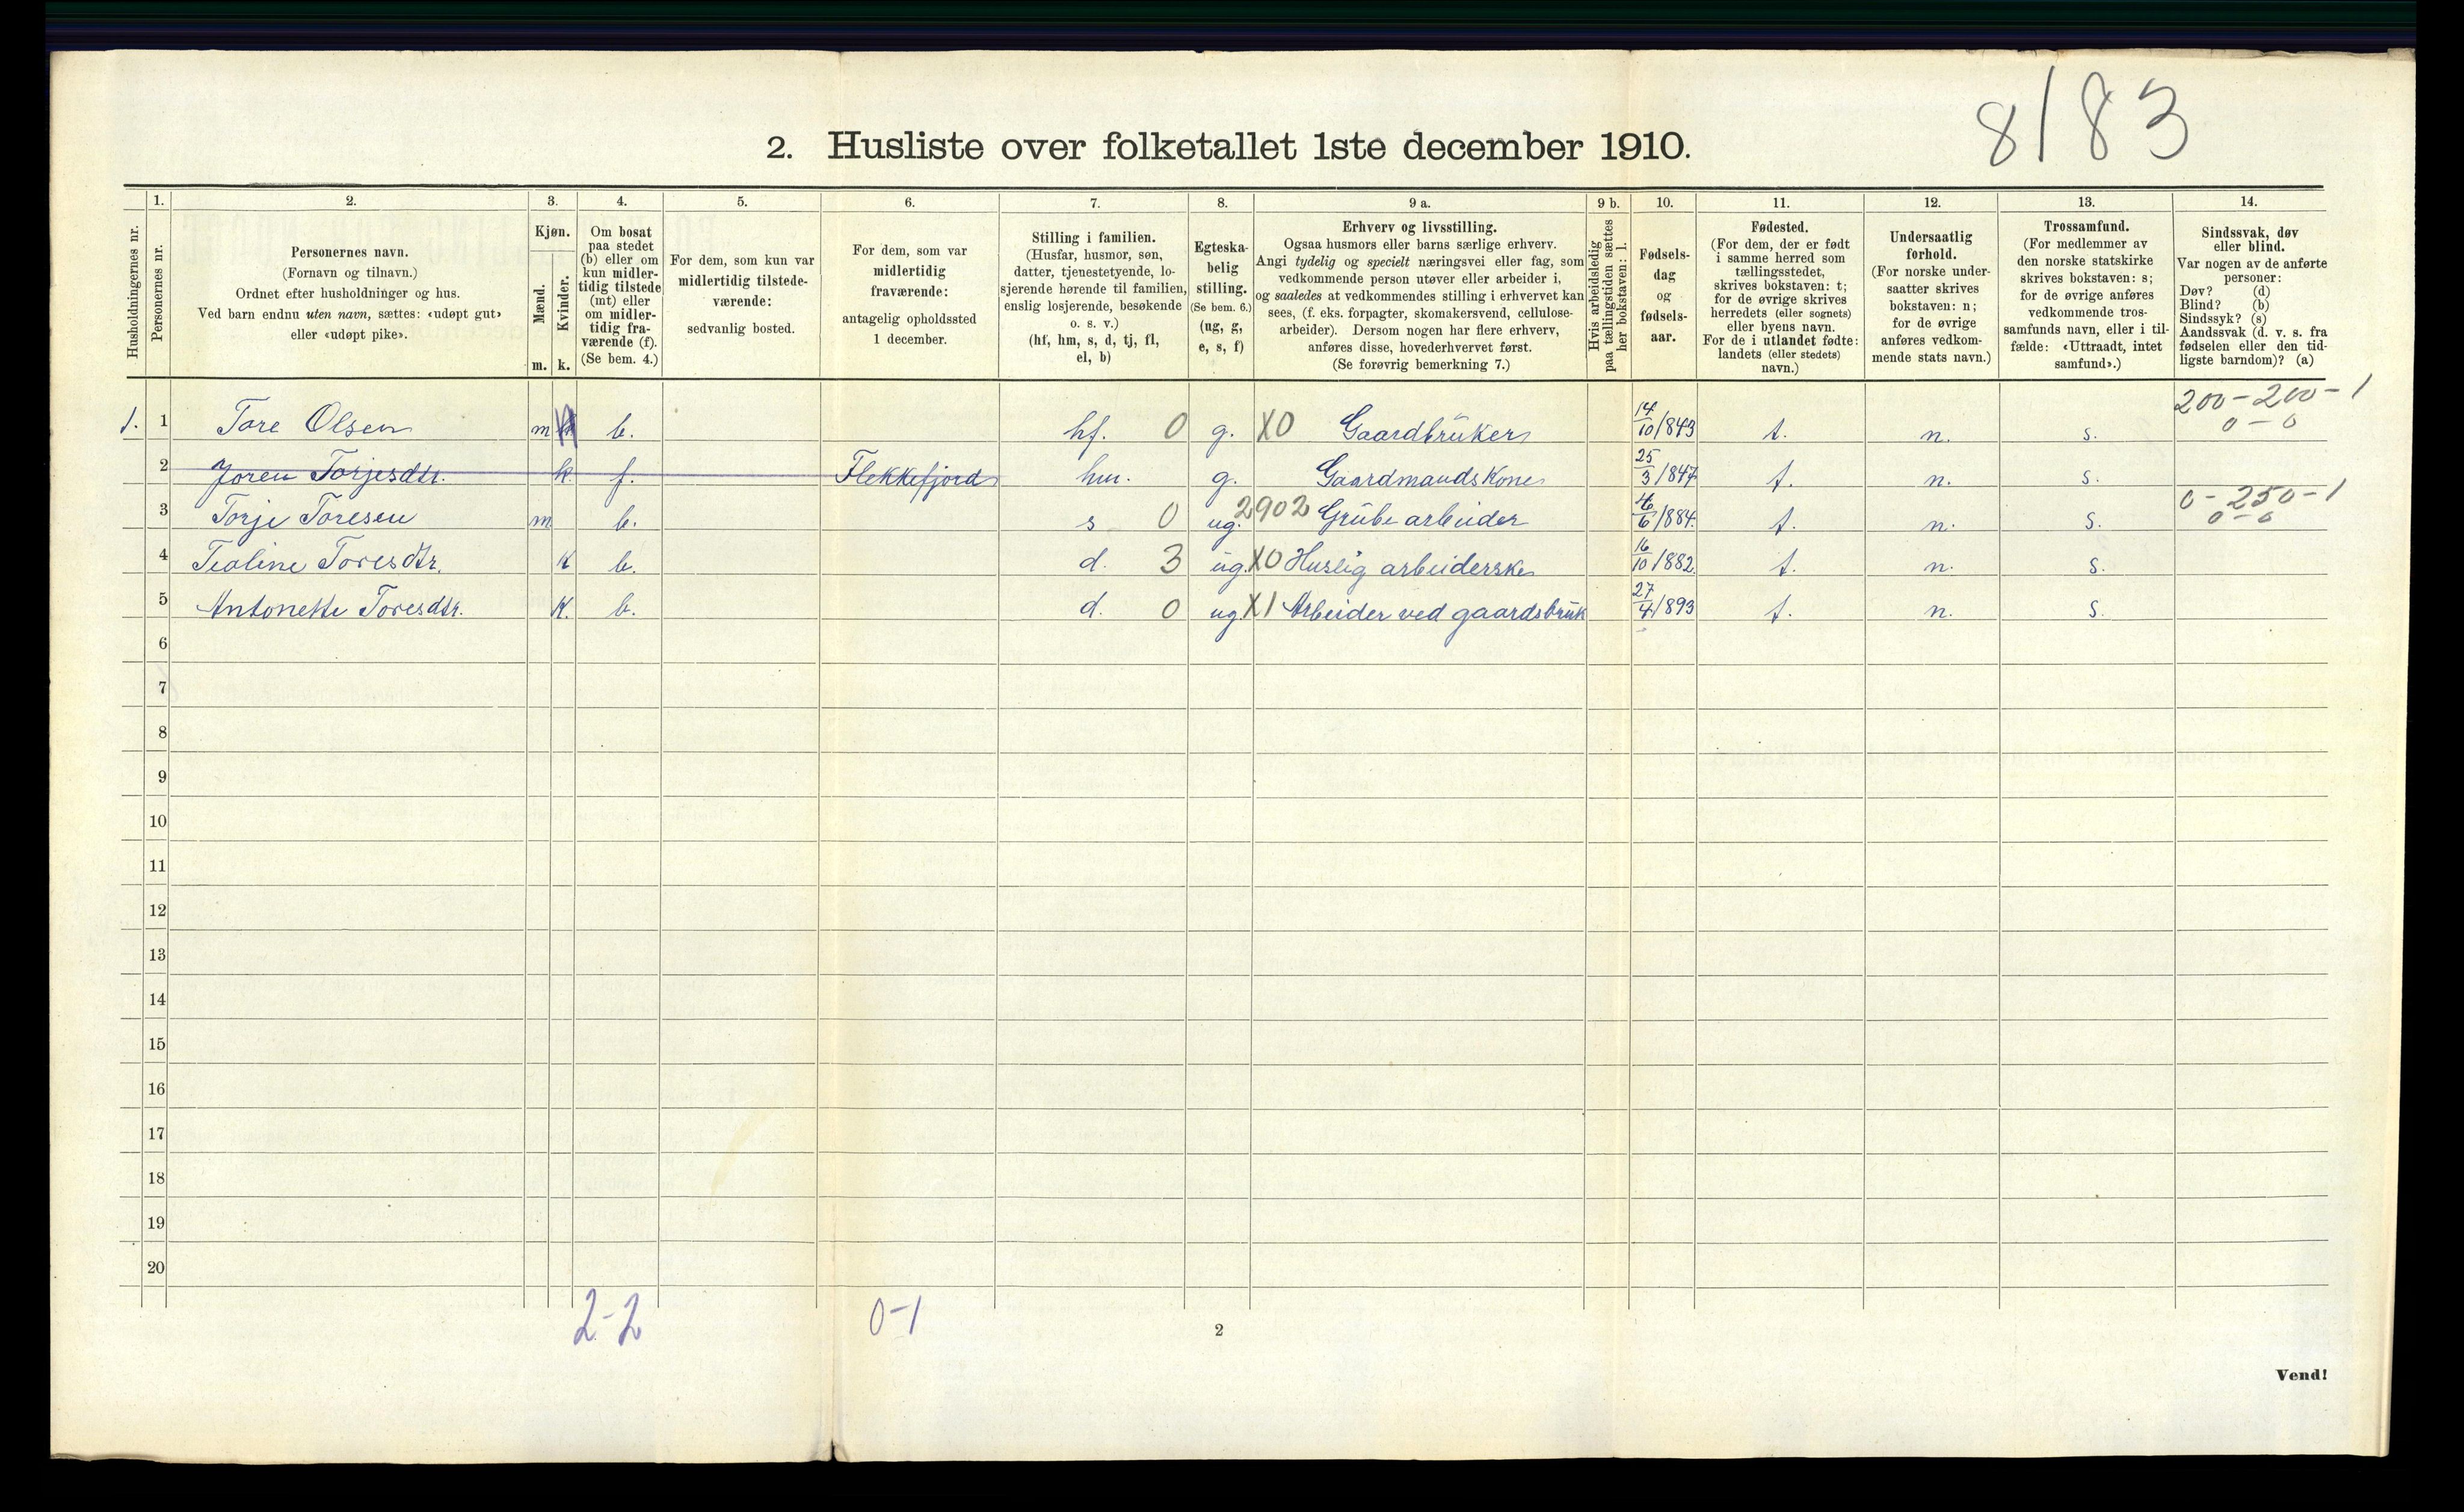 8183
2. Husliste over folketallet 1ste december 1910.
Husholdningernes nr.
1.
Personernes nr.
2.
Personernes navn.
(Fornavn og tilnavn.)
Ordnet efter husholdninger og hus.
Ved barn endnu uten navn, sættes: «udøpt gut»
eller «udøpt pike».
3.
Kjøn.
Mænd.
Kvinder.
m. k.
4.
Om bosat
paa stedet
(b) eller om
kun midler-
tidig tilstede
(mt) eller
om midler-
tidig fra-
værende (f).
(Se bem. 4.)
5.
For dem, som kun var
midlertidig tilstede-
værende:
sedvanlig bosted.
6.
For dem, som var
midlertidig
fraværende:
antagelig opholdssted
1 december.
7.
Stilling i familien.
(Husfar, husmor, søn,
datter, tjenestetyende, lo-
sjerende hørende til familien,
enslig losjerende, besøkende
o. s. v.)
(hf, hm, s, d, tj, fl,
el, b)
8.
Egteska-
belig
stilling.
(Se bem. 6.)
(ug, g,
e, s, f)
9 a.
Erhverv og livsstilling.
Ogsaa husmors eller barns særlige erhverv.
Angi tydelig og specielt næringsvei eller fag, som
vedkommende person utøver eller arbeider i,
og saaledes at vedkommendes stilling i erhvervet kan
sees, (f. eks. forpagter, skomakersvend, cellulose-
arbeider). Dersom nogen har flere erhverv,
anføres disse, hovederhvervet først.
(Se forøvrig bemerkning 7.)
9 b.
Hvis arbeidsledig
paa tællingstiden sættes
her bokstaven: l.
10.
Fødsels-
dag
og
fødsels-
aar.
11.
Fødested.
(For dem, der er født
i samme herred som
tællingsstedet,
skrives bokstaven: t;
for de øvrige skrives
herredets (eller sognets)
eller byens navn.
For de i utlandet fødte:
landets (eller stedets)
navn.)
12.
Undersaatlig
forhold.
(For norske under-
saatter skrives
bokstaven: n;
for de øvrige
anføres vedkom-
mende stats navn.)
13.
Trossamfund.
(For medlemmer av
den norske statskirke
skrives bokstaven: s;
for de øvrige anføres
vedkommende tros-
samfunds navn, eller i til-
fælde: «Uttraadt, intet
samfund».)
14.
Sindssvak, døv
eller blind.
Var nogen av de anførte
personer:
Døv? (d)
Blind? (b)
Sindssyk? (s)
Aandssvak (d. v. s. fra
fødselen eller den tid-
ligste barndom)? (a)
1. 1 Tore Olsen m b. hf. 0 g. X0 Gaardbrüker 14/10/843 t. n. s. 200-200-1 0-0
2 Joren Torjesdtr. k. f. Flekkefjord hm. g. Gaardmands Kone 25/3/847 t. n. s.
3 Torje Toresen m b. s 0 ug. 2902 Grübearbeider /6/884. t. n. s. 0-250-1 0-0
4 Tealine Toresdtr. k b. d. 3 üg X0 Huslig arbeiderske 16/10/882. t. n. s.
5 Antonette Toresdtr. K. b. d. 0 ug. X1 Arbeider ved gaardsbrük 27/4/893 t. n. s.
6
7
8
9
10
11
12
13
14
15
16
17
18
19
20
2-2 0-1
2
Vend!